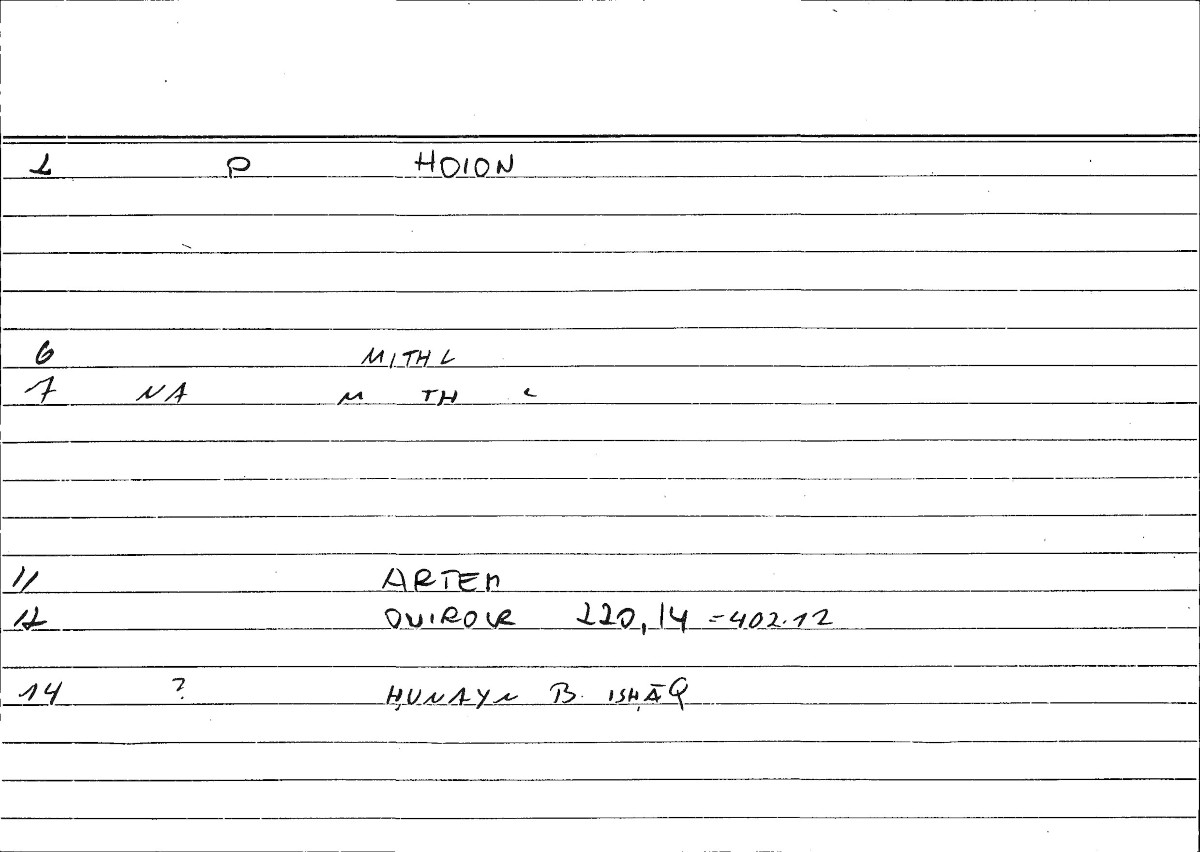 1 P HOION
6 MITHL
7 NA M TH L
11 ARTEM
12 OVIROVR 220,14 = 402.12
14 ? ḤUNAYN B. ISḤĀQ